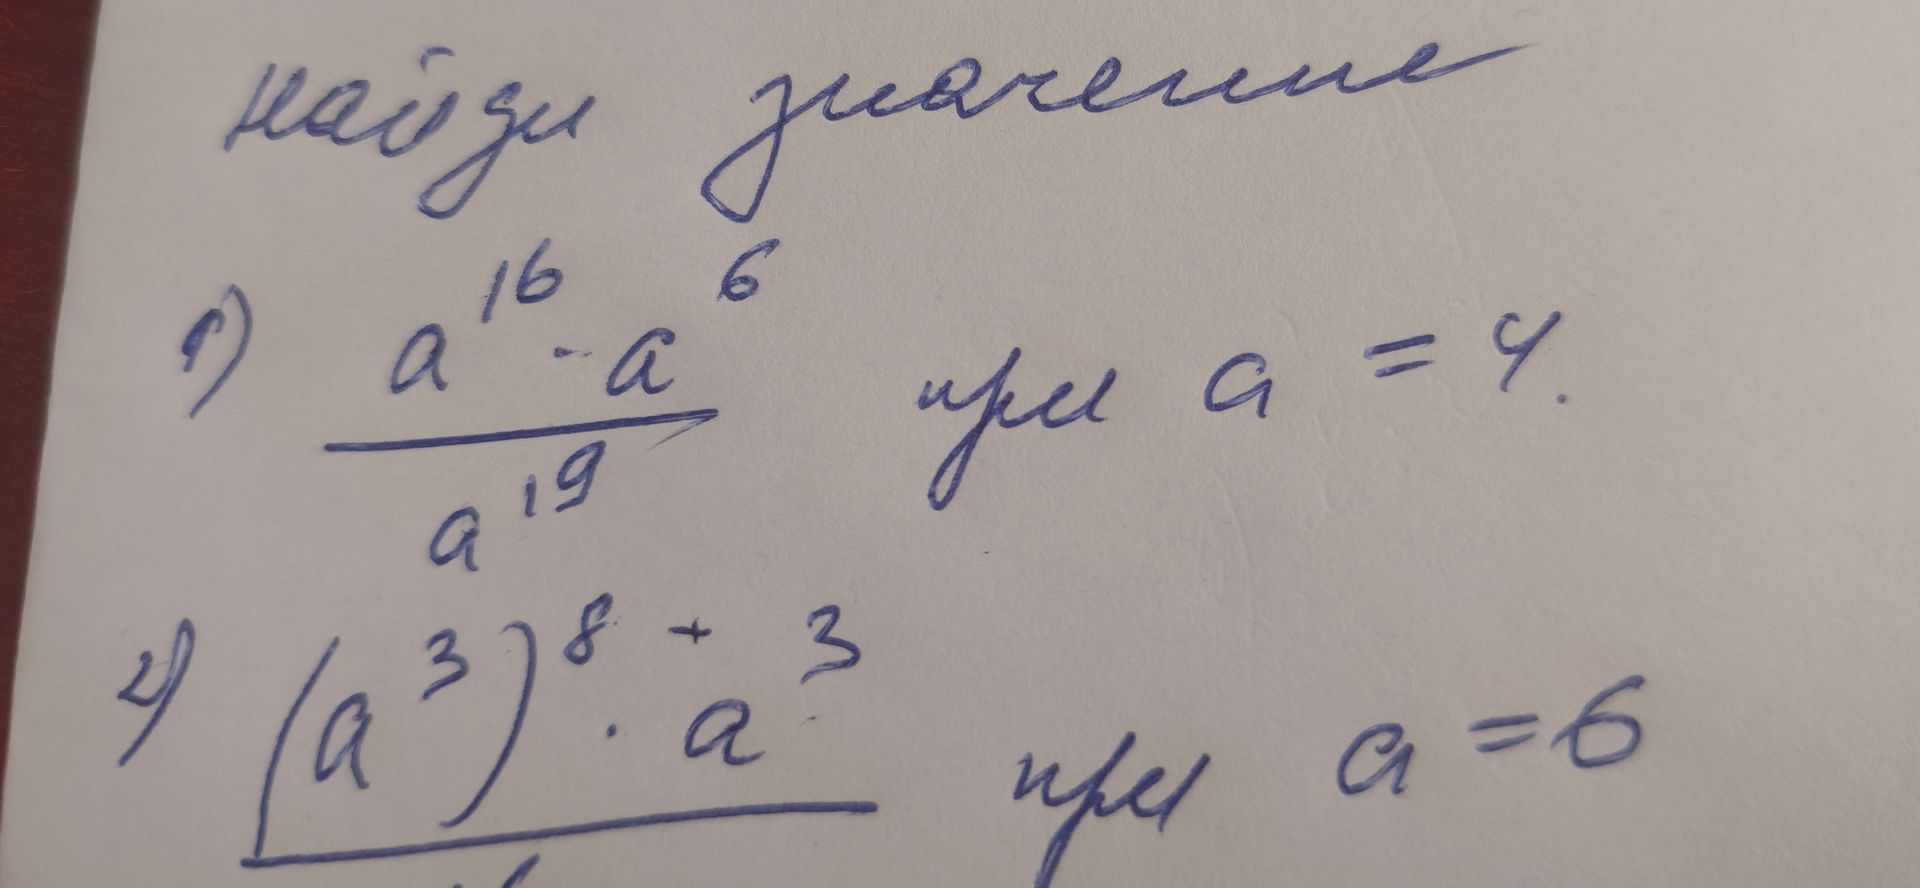 найди значение
1) a^16 · a^6 / a^19 при a = 4.
2) (a^3)^8 + · a^3 / при a = 6